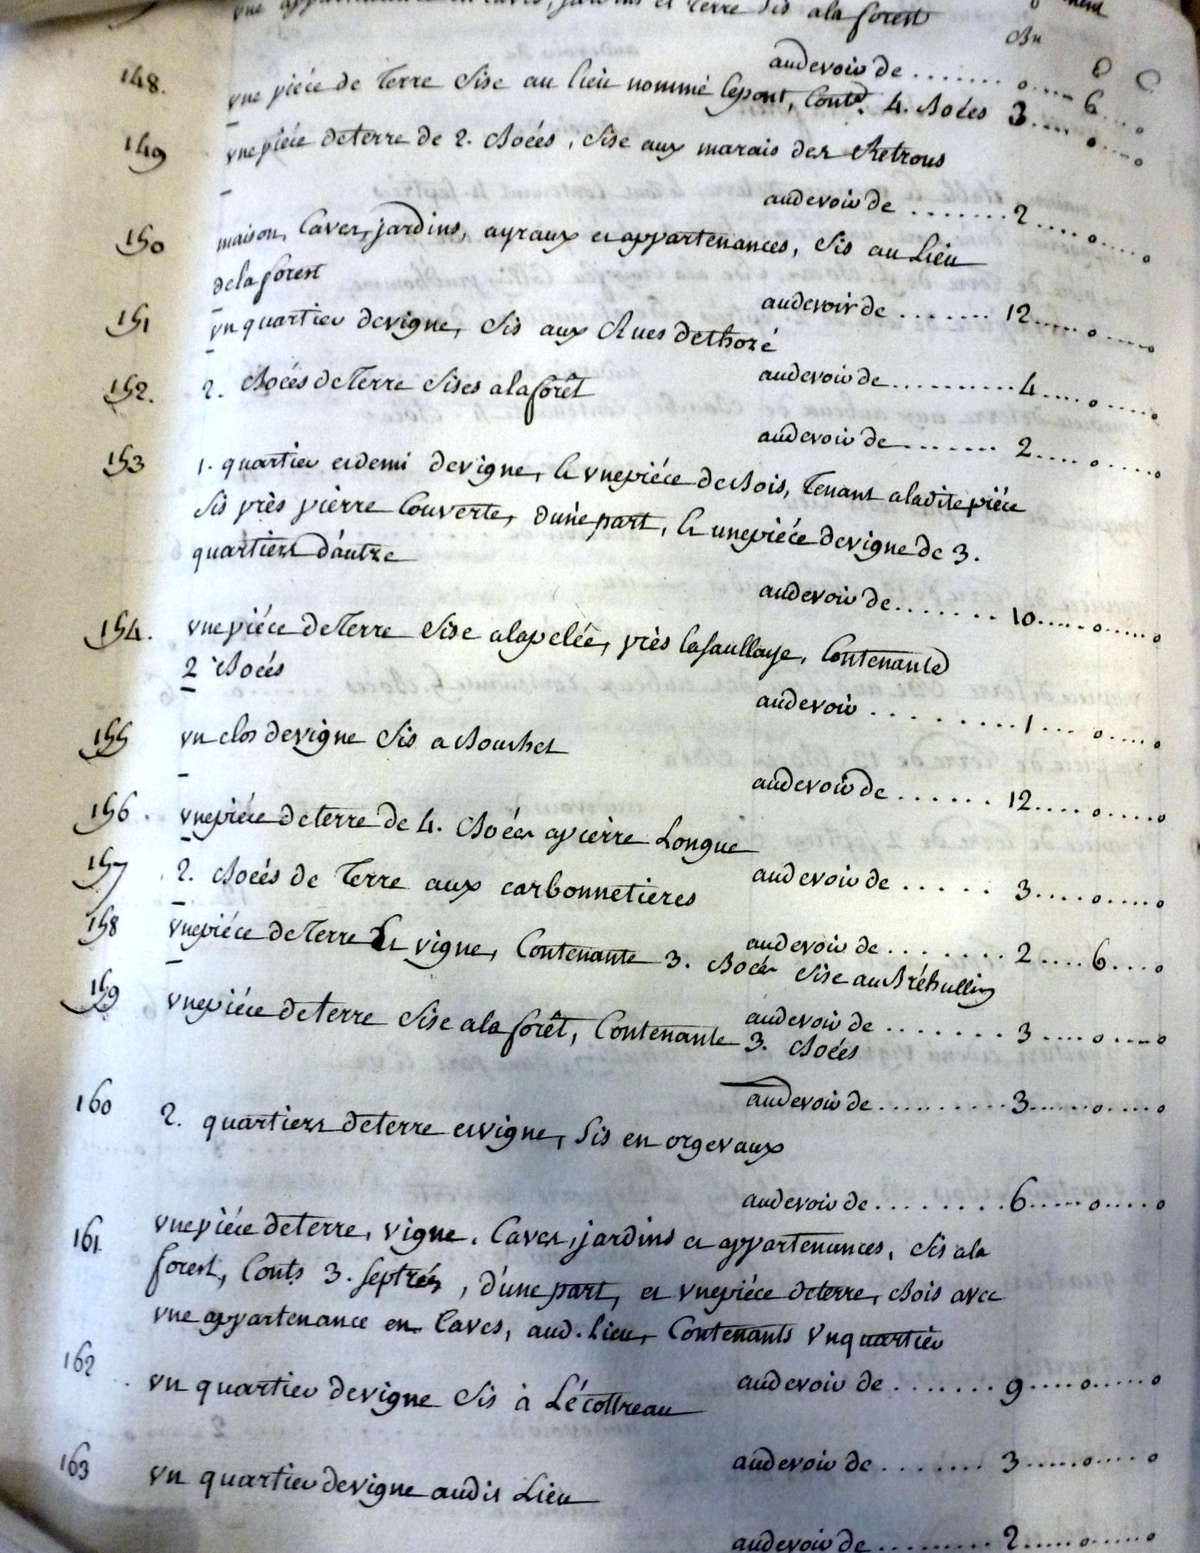 vne appartenance en Caves, jardins et Terre sis ala forest
audevoir de ....... o.... 6....o
148. vne piéce de Terre Sise au lieu nommé lepont, Conte. 4. Boées 3.... o....o
149 vnepiéce deterre de 2. Boées, Sise aux marais des Retrous
audevoir de ....... 2.... o.....o
150 maison, Caves, jardins, ayraux et appartenances, Sis au Lieu
delaforest
audevoir de ....... 12..... o.....o
151 vn quartier devigne, Sis aux Rues dethoré
audevoir de .......... 4.... o.....o
152. 2. Boées de Terre Sises alaforêt
audevoir de ....... 2.... o.....o
153 1. quartier et demi devigne, & vnepiéce de Bois, Tenant aladite piéce
Sis près pierre Couverte, d'une part, & unepiéce devigne de 3.
quartiers d'autre
audevoir de ....... 10.....o.....o
154. vnepiéce deTerre Sise alapelée, près lasaullaye, Contenante
2 Boées
audevoir ......... 1.... o.....o
155 vn clos devigne Sis a Bouchet
audevoir de ...... 12.... o.....o
156. vnepiéce deterre de 4. Boées apierre Longue
audevoir de ..... 3.... o.....o
157 2. Boées de Terre aux carbonnetieres
audevoir de ........ 2....6....o
158 vnepiéce deTerre Et vigne, Contenante 3. Boées Sise au Bréhullin
audevoir de ........ 3.... o....o
159 vnepiéce deterre Sise ala forêt, Contenante 3. Boées
audevoir de .......... 3......o.....o
160 2. quartiers deterre et vigne, Sis en orgevaux
audevoir de ......... 6......o.....o
161. vnepiéce deterre, vigne, Caves, jardins et appartenances, Sis ala
forest, Conts 3. septrées, d'une part, et vnepiéce deterre, Bois avec
vne appartenance en Caves, aud. Lieu, Contenants vnquartier
audevoir de ....... 9.....o......o
162 vn quartier devigne Sis à Lécottreau
audevoir de ....... 3......o.....o
163 vn quartier devigne audit Lieu
audevoir de ......... 2......o.....o